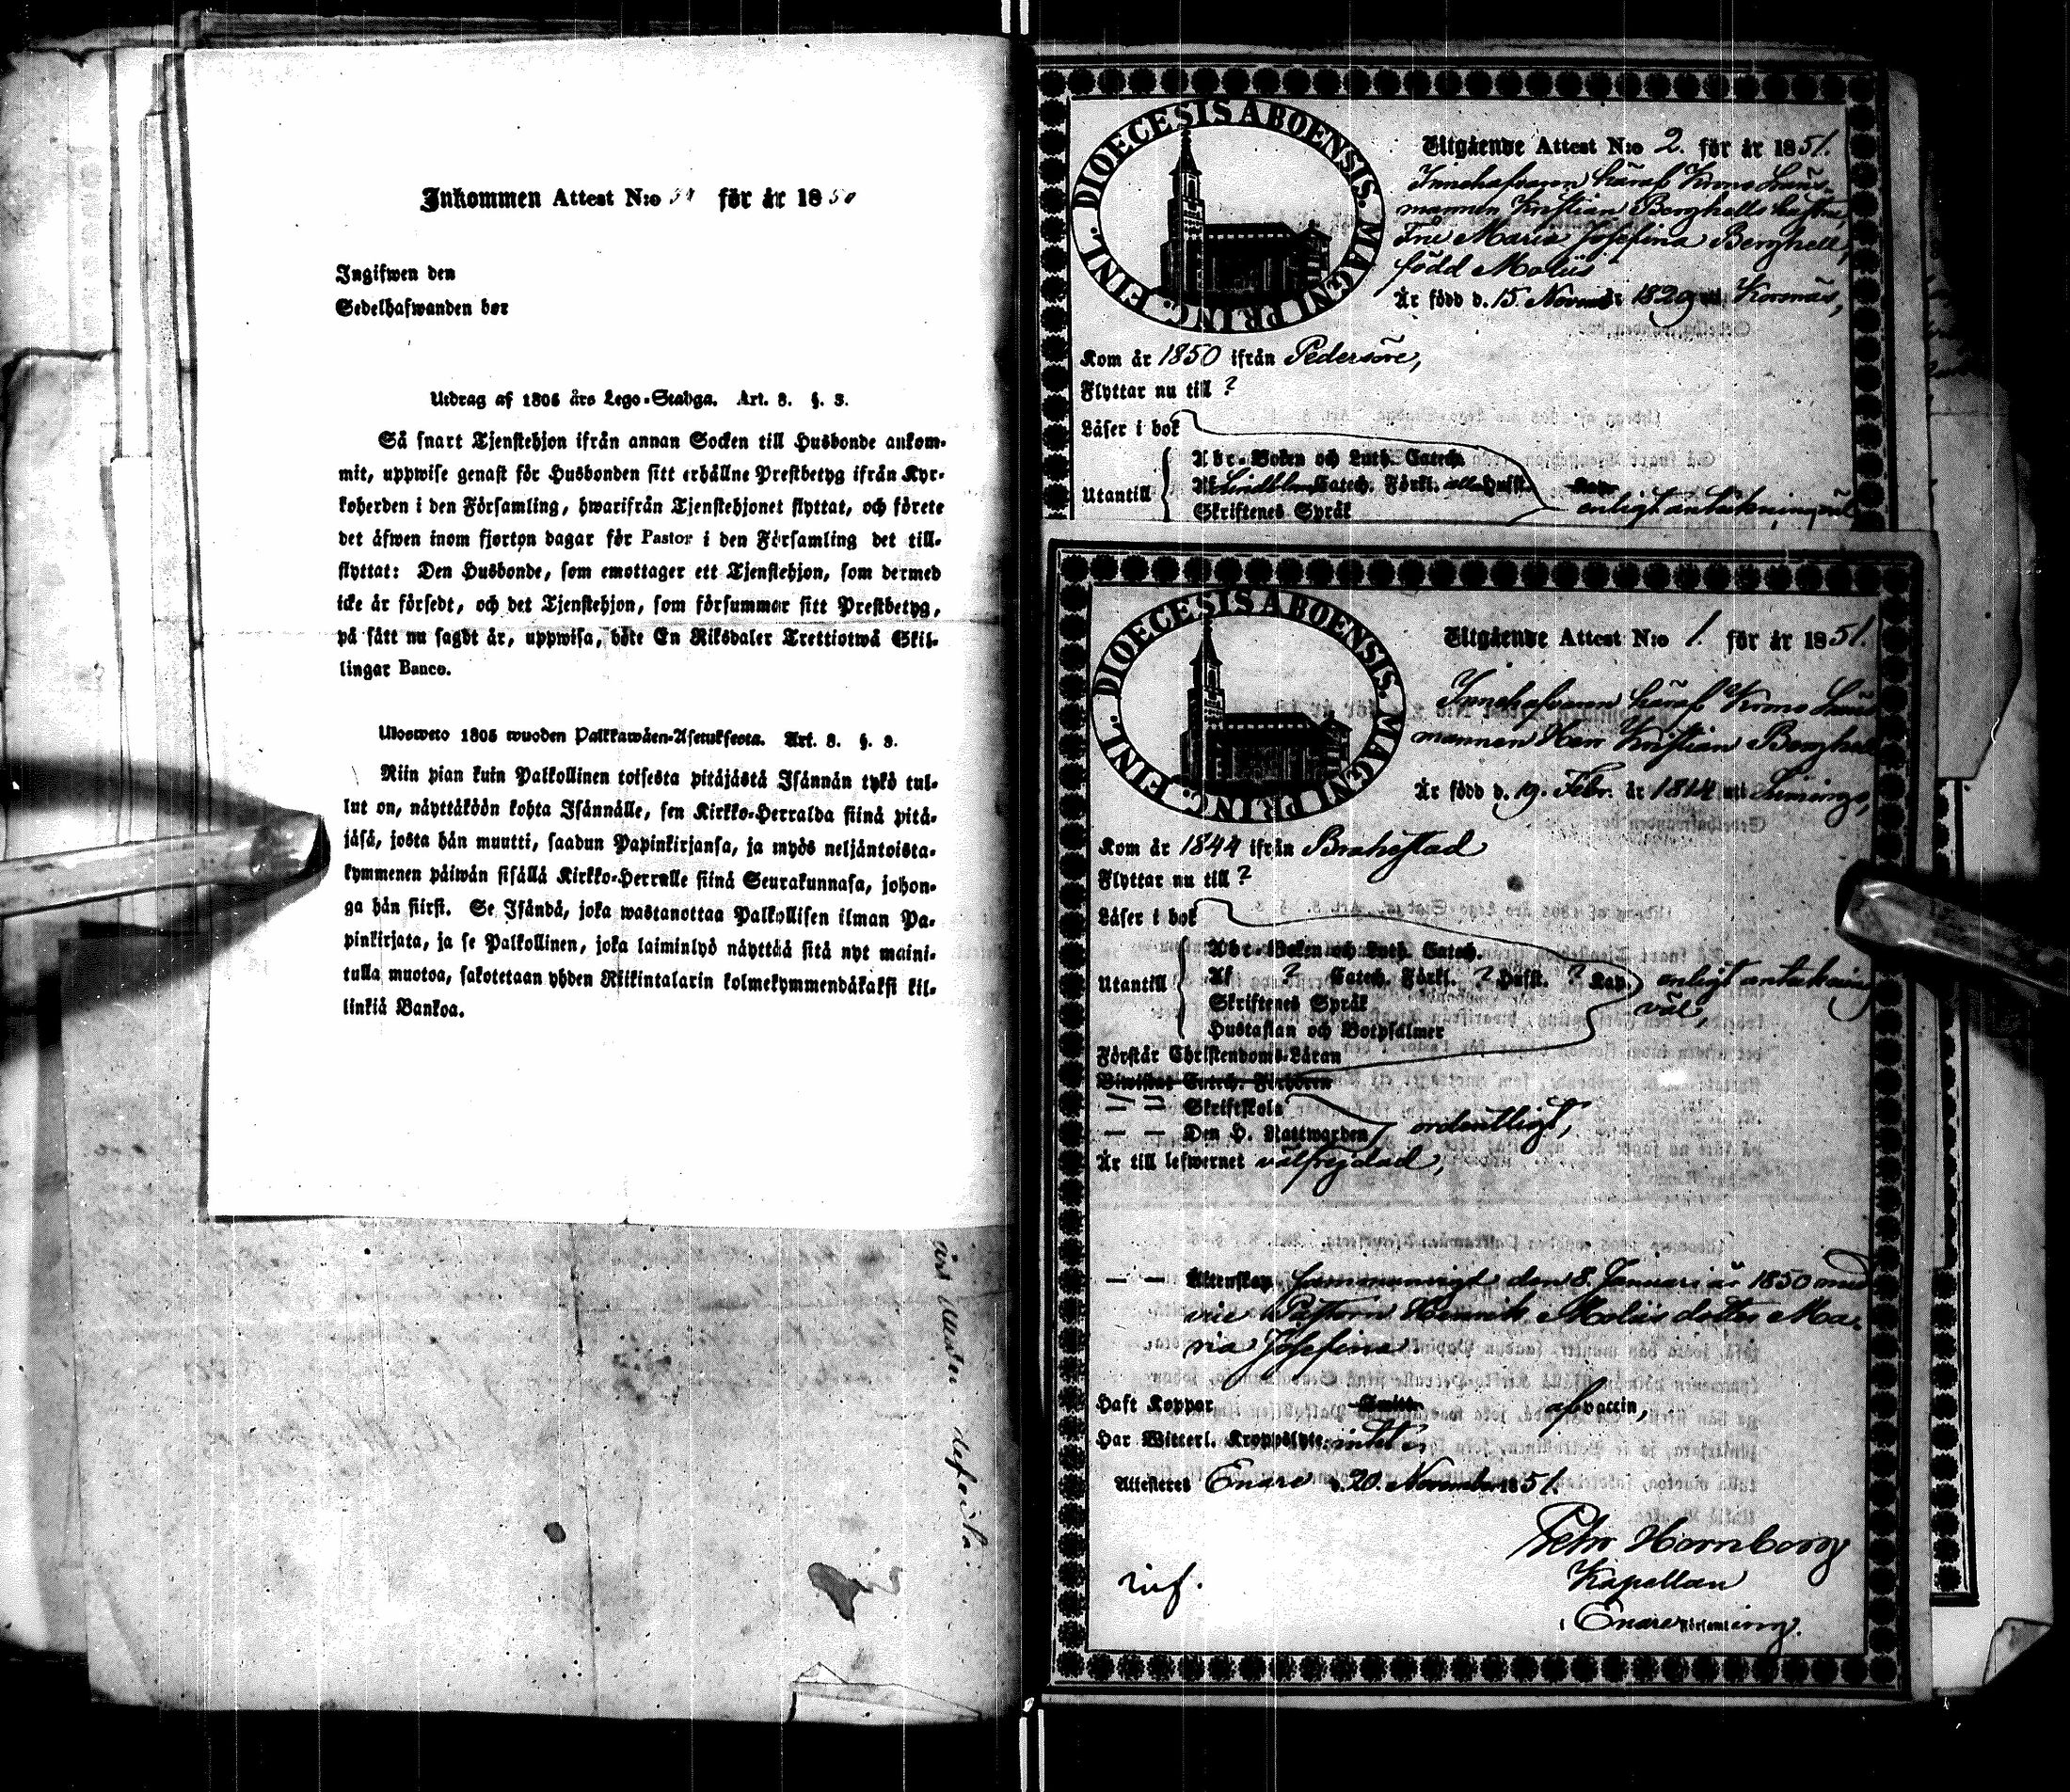 Inkommen Attest N:o 51 för år 1850
Ingifwen den
Sedelhafwanden bor
Utdrag af 1805 års Lego-Stadga. Art. 8. §. 3.
Så snart Tjenstehjon ifrån annan Socken till Husbonde ankom-
mit, uppwise genast för Husbonden sitt erhållne Prestbetyg ifrån Kyr-
koherden i den Församling, hwarifrån Tjenstehjonet flyttat, och förete
det äfwen inom fjorton dagar för Pastor i den Församling det till-
flyttat: Den Husbonde, som emottager ett Tjenstehjon, som dermed
icke är försedt, och det Tjenstehjon, som försummar sitt Prestbetyg,
på sätt nu sagdt är, uppwisa, böte En Riksdaler Trettiotwå Skil-
lingar Banco.
Ulosweto 1805 wuoden Palkkawäen-Asetuksesta. Art. 8. §. 3.
Niin pian kuin Palkollinen toisesta pitäjästä Isännän tykö tul-
lut on, näyttäköön kohta Isännälle, sen Kirkko-Herralda siinä pitä-
jäsä, josta hän muutti, saadun Papinkirjansa, ja myös neljäntoista-
kymmenen päiwän sisällä Kirkko-Herralle siinä Seurakunnasa, johon-
ga hän siirst. Se Isändä, joka wastanottaa Palkollisen ilman Pa-
pinkirjata, ja se Palkollinen, joka laiminlyö näyttää sitä nyt maini-
tulla muotoa, sakotetaan yhden Riikintalarin kolmekymmendäkaksi kil-
linkiä Bankoa.
DIOECESIS ABOENSIS. MAGNI PRINC. FINL.
Utgående Attest N:o 2. för år 1851.
Innehafvaren häraf Krono Läns-
mannen Kristian Berghells hustru,
Fru Maria Josefina Berghell,
född Moliis
Är född d. 15 Novemb år 1829 uti Korsnäs,
Kom år 1850 ifrån Pedersöre,
Flyttar nu till ?
Läser i bok
Utantill
Abc-Boken och Luth. Catech.
Af Lindbloms Catech. Förkl. alla Hufst. Kap.
Skriftenes Språk enligt anteckning, väl
DIOECESIS ABOENSIS. MAGNI PRINC. FINL.
Utgående Attest N:o 1. för år 1851.
Innehafvaren häraf Krono Läns
mannen Herr Kristian Berghell
Är född d. 19. Febr. år 1814 uti Limingo,
Kom år 1844 ifrån Brahestad
Flyttar nu till ?
Läser i bok
Utantill
Abc-Boken och Luth. Catech.
Af ? Catech. Förkl. ? Hufst. ? Kap. enligt anteckning
Skriftenes Språk väl,
Hustaflan och Botpsalmer
Förstår Christendoms-Läran
Biwistat Catech. Förhören
— — Skriftskola
— — Den H. Nattwarden ordentligt,
Är till lefwernet välfrejdad,
— — Äktenskap sammanvigd den 8. Januari år 1850 med
vice Pastorn Henrik Moliis dotter Ma-
ria Josefina.
Haft Koppor Smitt- af vaccin,
Har Witterl. Kroppslyte: intet
Attesteres Enare d. 20. November 1851.
Petr Hornborg
Kapellan
i Enare Församling.